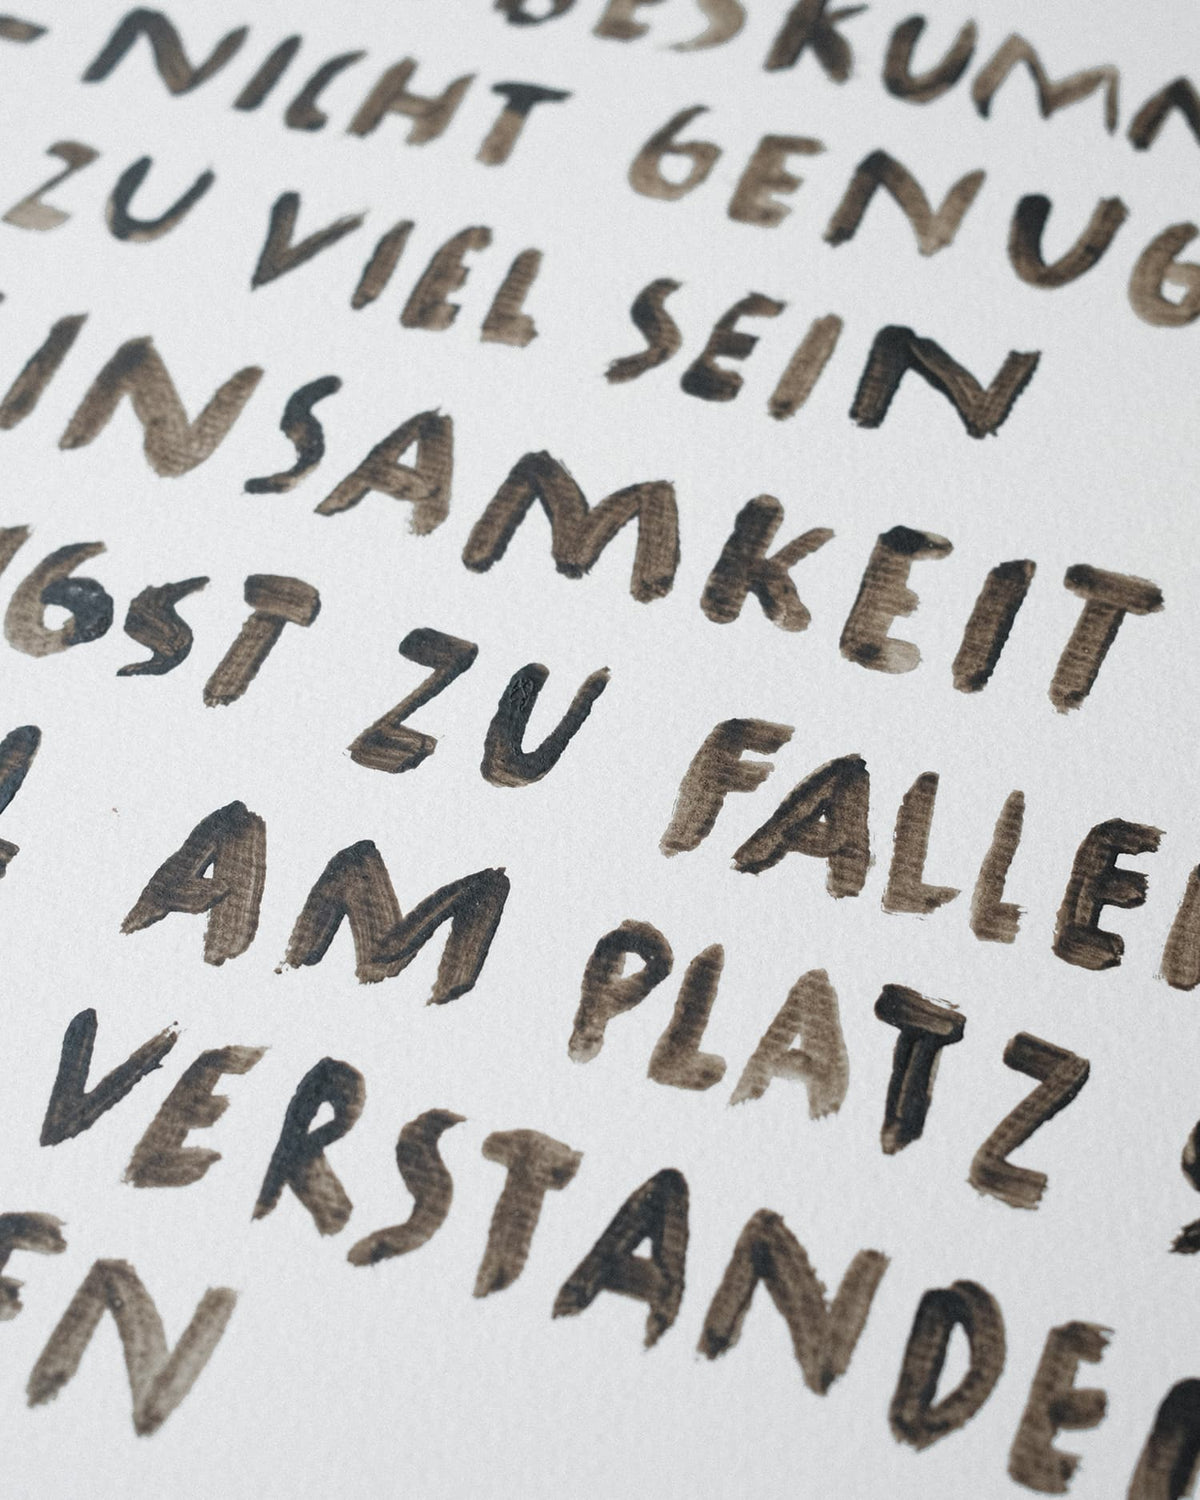 NICHT GENUG
ZU VIEL SEIN
EINSAMKEIT
ANGST ZU FALLEN
AM PLATZ
VERSTANDEN